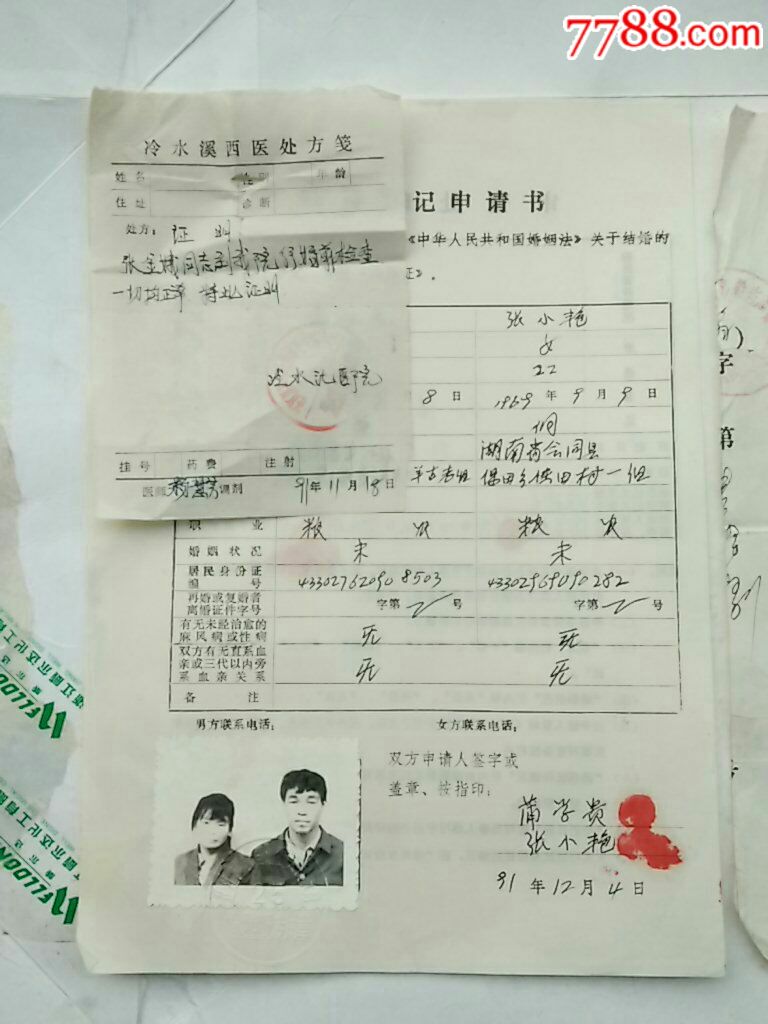 7788.com
冷水溪西医处方笺
姓名 性别 年龄
住址 诊断
处方: 证明
同志到我院行婚前检查
一切均正常 特此证明
冷水沈医院
挂号 药费 注射
医师 调剂 91年11月18日
记申请书
《中华人民共和国婚姻法》关于结婚的
证》。
张小艳
女
22
8日 1969年9月9日
侗
湖南省会同县
村一组
职业 粮农 粮农
婚姻状况 未 未
居民身份证
编号 433027620908503 43302969090282
再婚或复婚者
离婚证件字号 字第 号 字第 号
有无未经治愈的
麻风病或性病 无 无
双方有无直系血
亲或三代以内旁
系血亲关系 无 无
备注
男方联系电话: 女方联系电话:
双方申请人签字或
盖章、按指印:
蒲学贵
张小艳
91年12月4日
字
第
WELLDONE